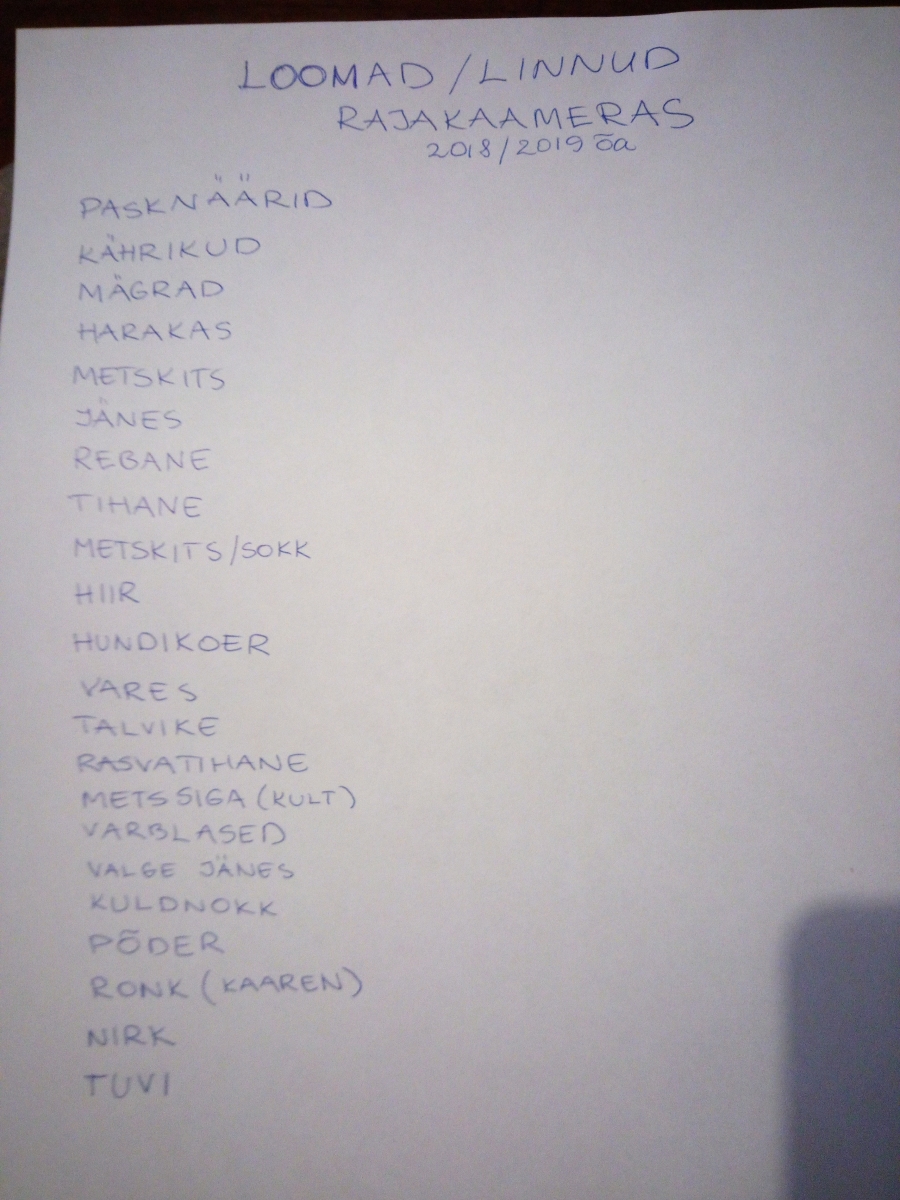 LOOMAD / LINNUD
RAJAKAAMERAS
2018/2019 õa
PASKNÄÄRID
KÄHRIKUD
MÄGRAD
HARAKAS
METSKITS
JÄNES
REBANE
TIHANE
METSKITS/SOKK
HIIR
HUNDIKOER
VARES
TALVIKE
RASVATIHANE
METSSIGA (KULT)
VARBLASED
VALGE JÄNES
KULDNOKK
PÕDER
RONK (KAAREN)
NIRK
TUVI